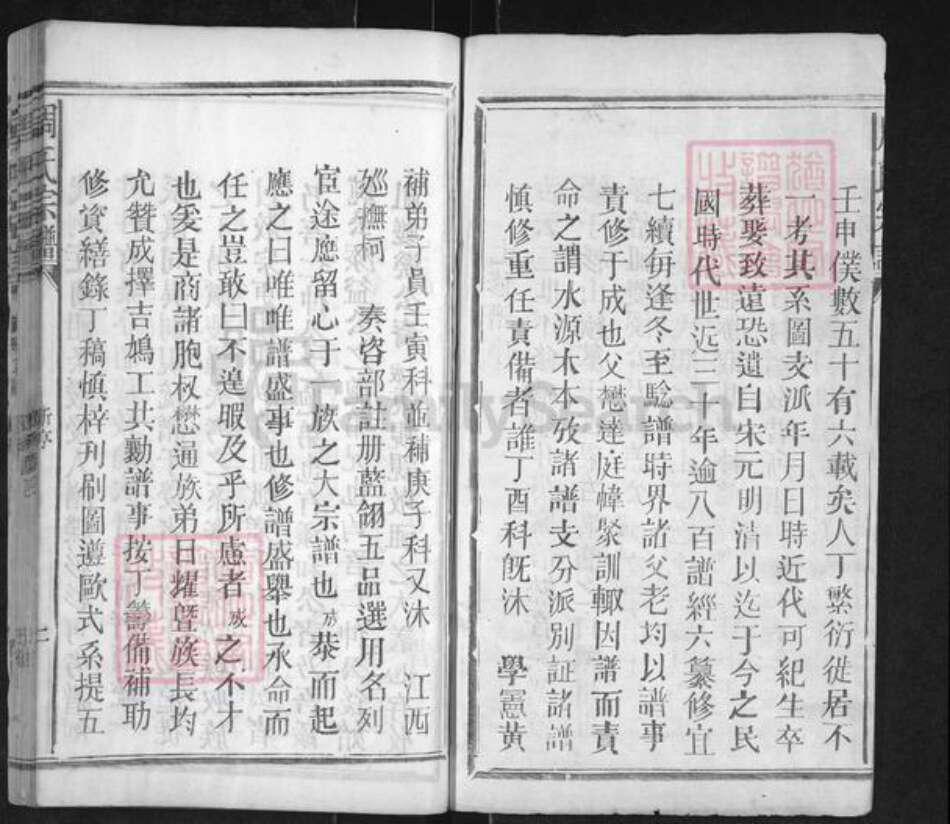 壬申僕數五十有六載矣人丁繁衍徙居不
一考其系圖支派年月日時近代可紀生卒
葬娶致遠恐遺自宋元明清以迄于今之民
國時代世近三十年逾八百譜經六纂修宜
七續每逢冬至騐譜時界諸父老均以譜事
責修于成也父懋達庭幃聚訓輙因譜而責
命之謂水源木本攷諸譜支分派別証諸譜
慎修重任責備者誰丁酉科旣沐 學憲黄
補弟子員壬寅科並補庚子科又沐 江西
廵撫柯 奏咨部註册藍翎五品選用名列
宦途應留心于一族之大宗譜也成恭而起
應之曰唯唯譜盛事也修譜盛舉也承命而
任之豈敢曰不遑暇及乎所慮者成之不才
也爰是商諸胞叔懋通族弟日燿暨族長均
允贊成擇吉鳩工共勷譜事按丁籌備補助
修資繕錄丁稿慎梓刋刷圖遵歐式系提五
周氏宗譜
新序
二
FamilySearch